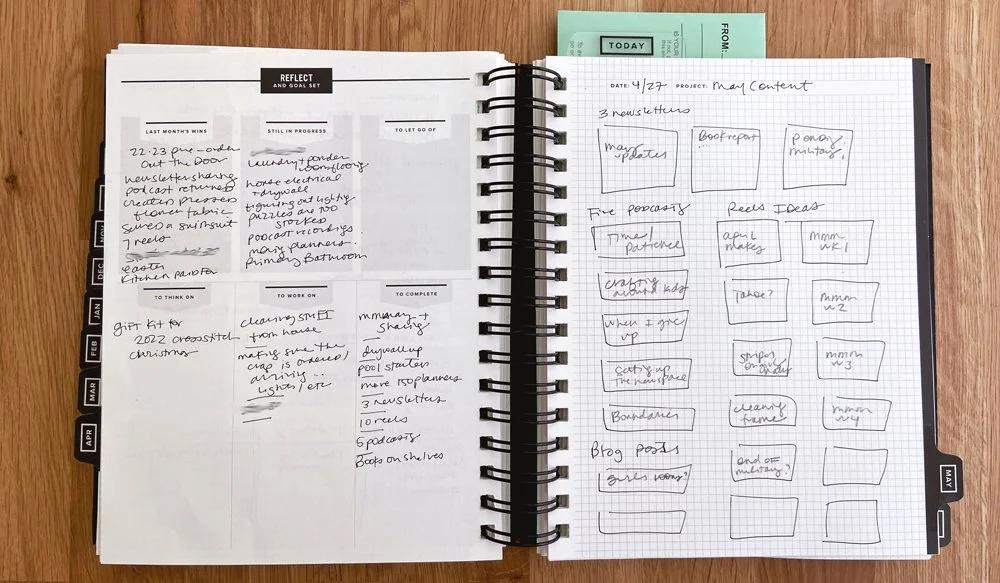 REFLECT
AND GOAL SET
LAST MONTH'S WINS
22-23 pre-order
Out The Door
newsletter sharing
podcast returned
created pressed
flower fabric
Sewed a swimsuit
7 reels
Easter
Kitchen pantry
STILL IN PROGRESS
Laundry + powder
room flooring
house electrical
+ drywall
figuring out lighting
puzzles are too
stocked
podcast recordings
many planners.
primary Bathroom
TO LET GO OF
TO THINK ON
gift kit for
2022 crossstitch
christmas
TO WORK ON
cleaning STMFI
from house
making sure the
crap is ordered/
arriving...
lights/etc
TO COMPLETE
mmmay +
sharing
drywall up
pool started
more 150 planners
3 newsletters
10 reels
5 podcasts
Books on shelves
NOV
DEC
JAN
FEB
MAR
APR
FROM:
IS YOUR
TODAY
DATE: 4/27 PROJECT: May Content
3 newsletters
may
updates
Book report
...
military
Five Podcasts
Time/
Patience
crafting
around kids
when I give
up
Setting up
the newspace
Boundaries
Blog posts
girls rooms?
Reels Ideas
april
makes
mmm
wk1
Tahoe?
mmm
w2
stripes
mmm
w3
cleaning
frame
mmm
w4
end of
military?
MAY